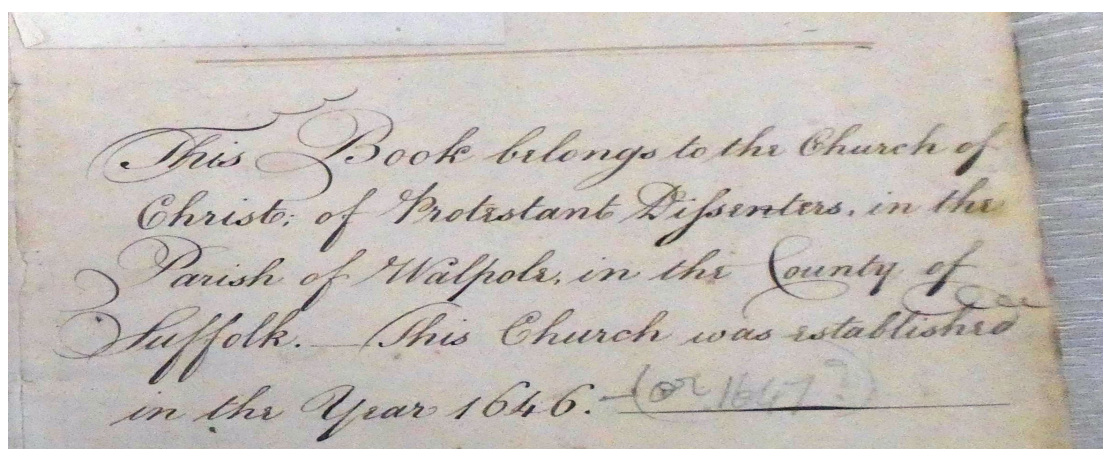 This Book belongs to the Church of
Christ; of Protestant Dissenters, in the
Parish of Walpole, in the County of
Suffolk. — This Church was established
in the Year 1646. — (or 1647?)